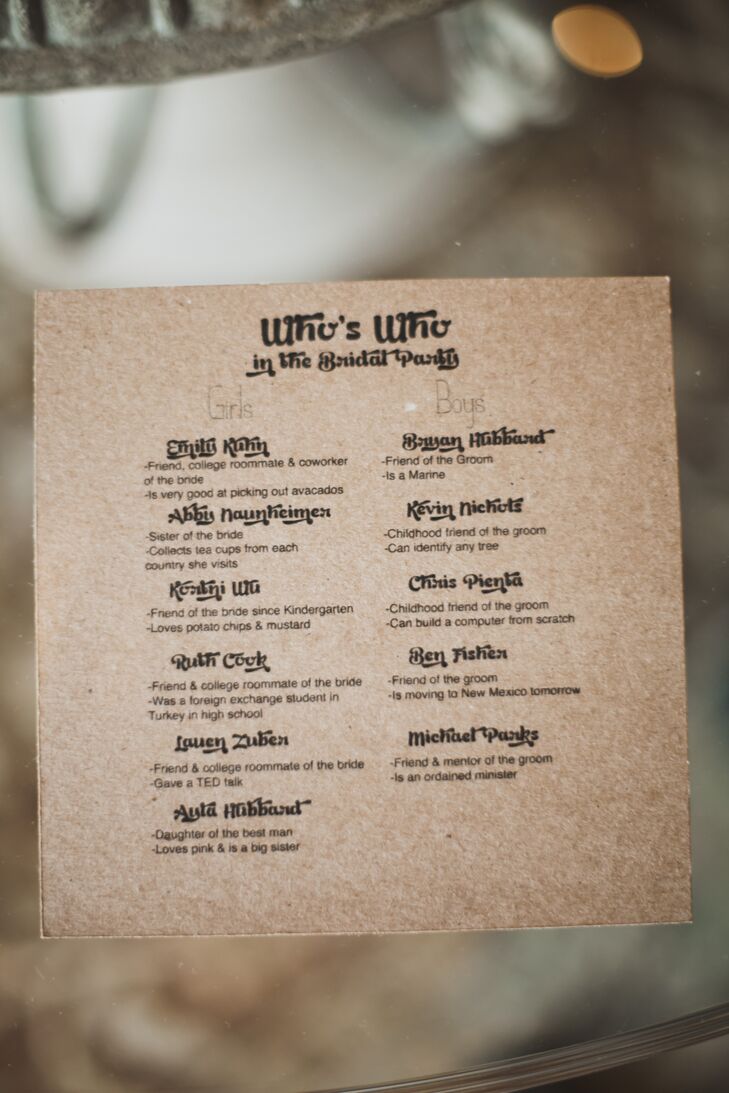 Who's Who
in the Bridal Party
Girls
Emily Kuhn
-Friend, college roommate & coworker
of the bride
-Is very good at picking out avacados
Abby Naunheimer
-Sister of the bride
-Collects tea cups from each
country she visits
Kortni Wu
-Friend of the bride since Kindergarten
-Loves potato chips & mustard
Ruth Cook
-Friend & college roommate of the bride
-Was a foreign exchange student in
Turkey in high school
Lauen Zuber
-Friend & college roommate of the bride
-Gave a TED talk
Ayla Hubbard
-Daughter of the best man
-Loves pink & is a big sister
Boys
Bryan Hubbard
-Friend of the Groom
-Is a Marine
Kevin Nichols
-Childhood friend of the groom
-Can identify any tree
Chris Pienta
-Childhood friend of the groom
-Can build a computer from scratch
Ben Fisher
-Friend of the groom
-Is moving to New Mexico tomorrow
Michael Parks
-Friend & mentor of the groom
-Is an ordained minister